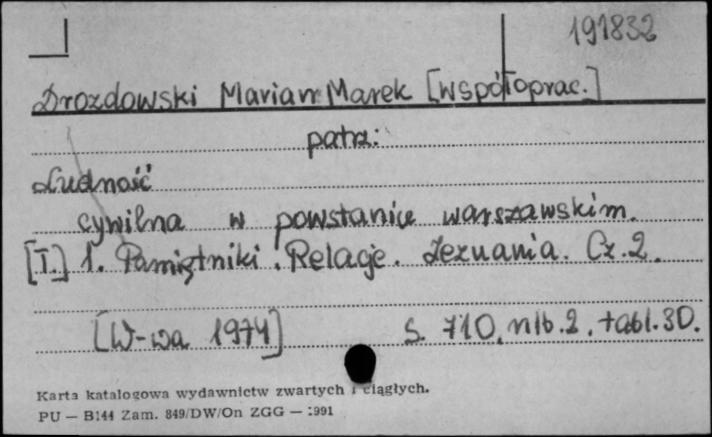 191832
Drozdowski Marian Marek [współoprac.]
patrz:
Ludność
cywilna w powstaniu warszawskim.
[T.] 1. Pamiętniki. Relacje. Zeznania. Cz. 2.
[W-wa 1974] S. 710, nlb. 2. tabl. 30.
Karta katalogowa wydawnictw zwartych i ciągłych.
PU — B144 Zam. 849/DW/On ZGG — 1991